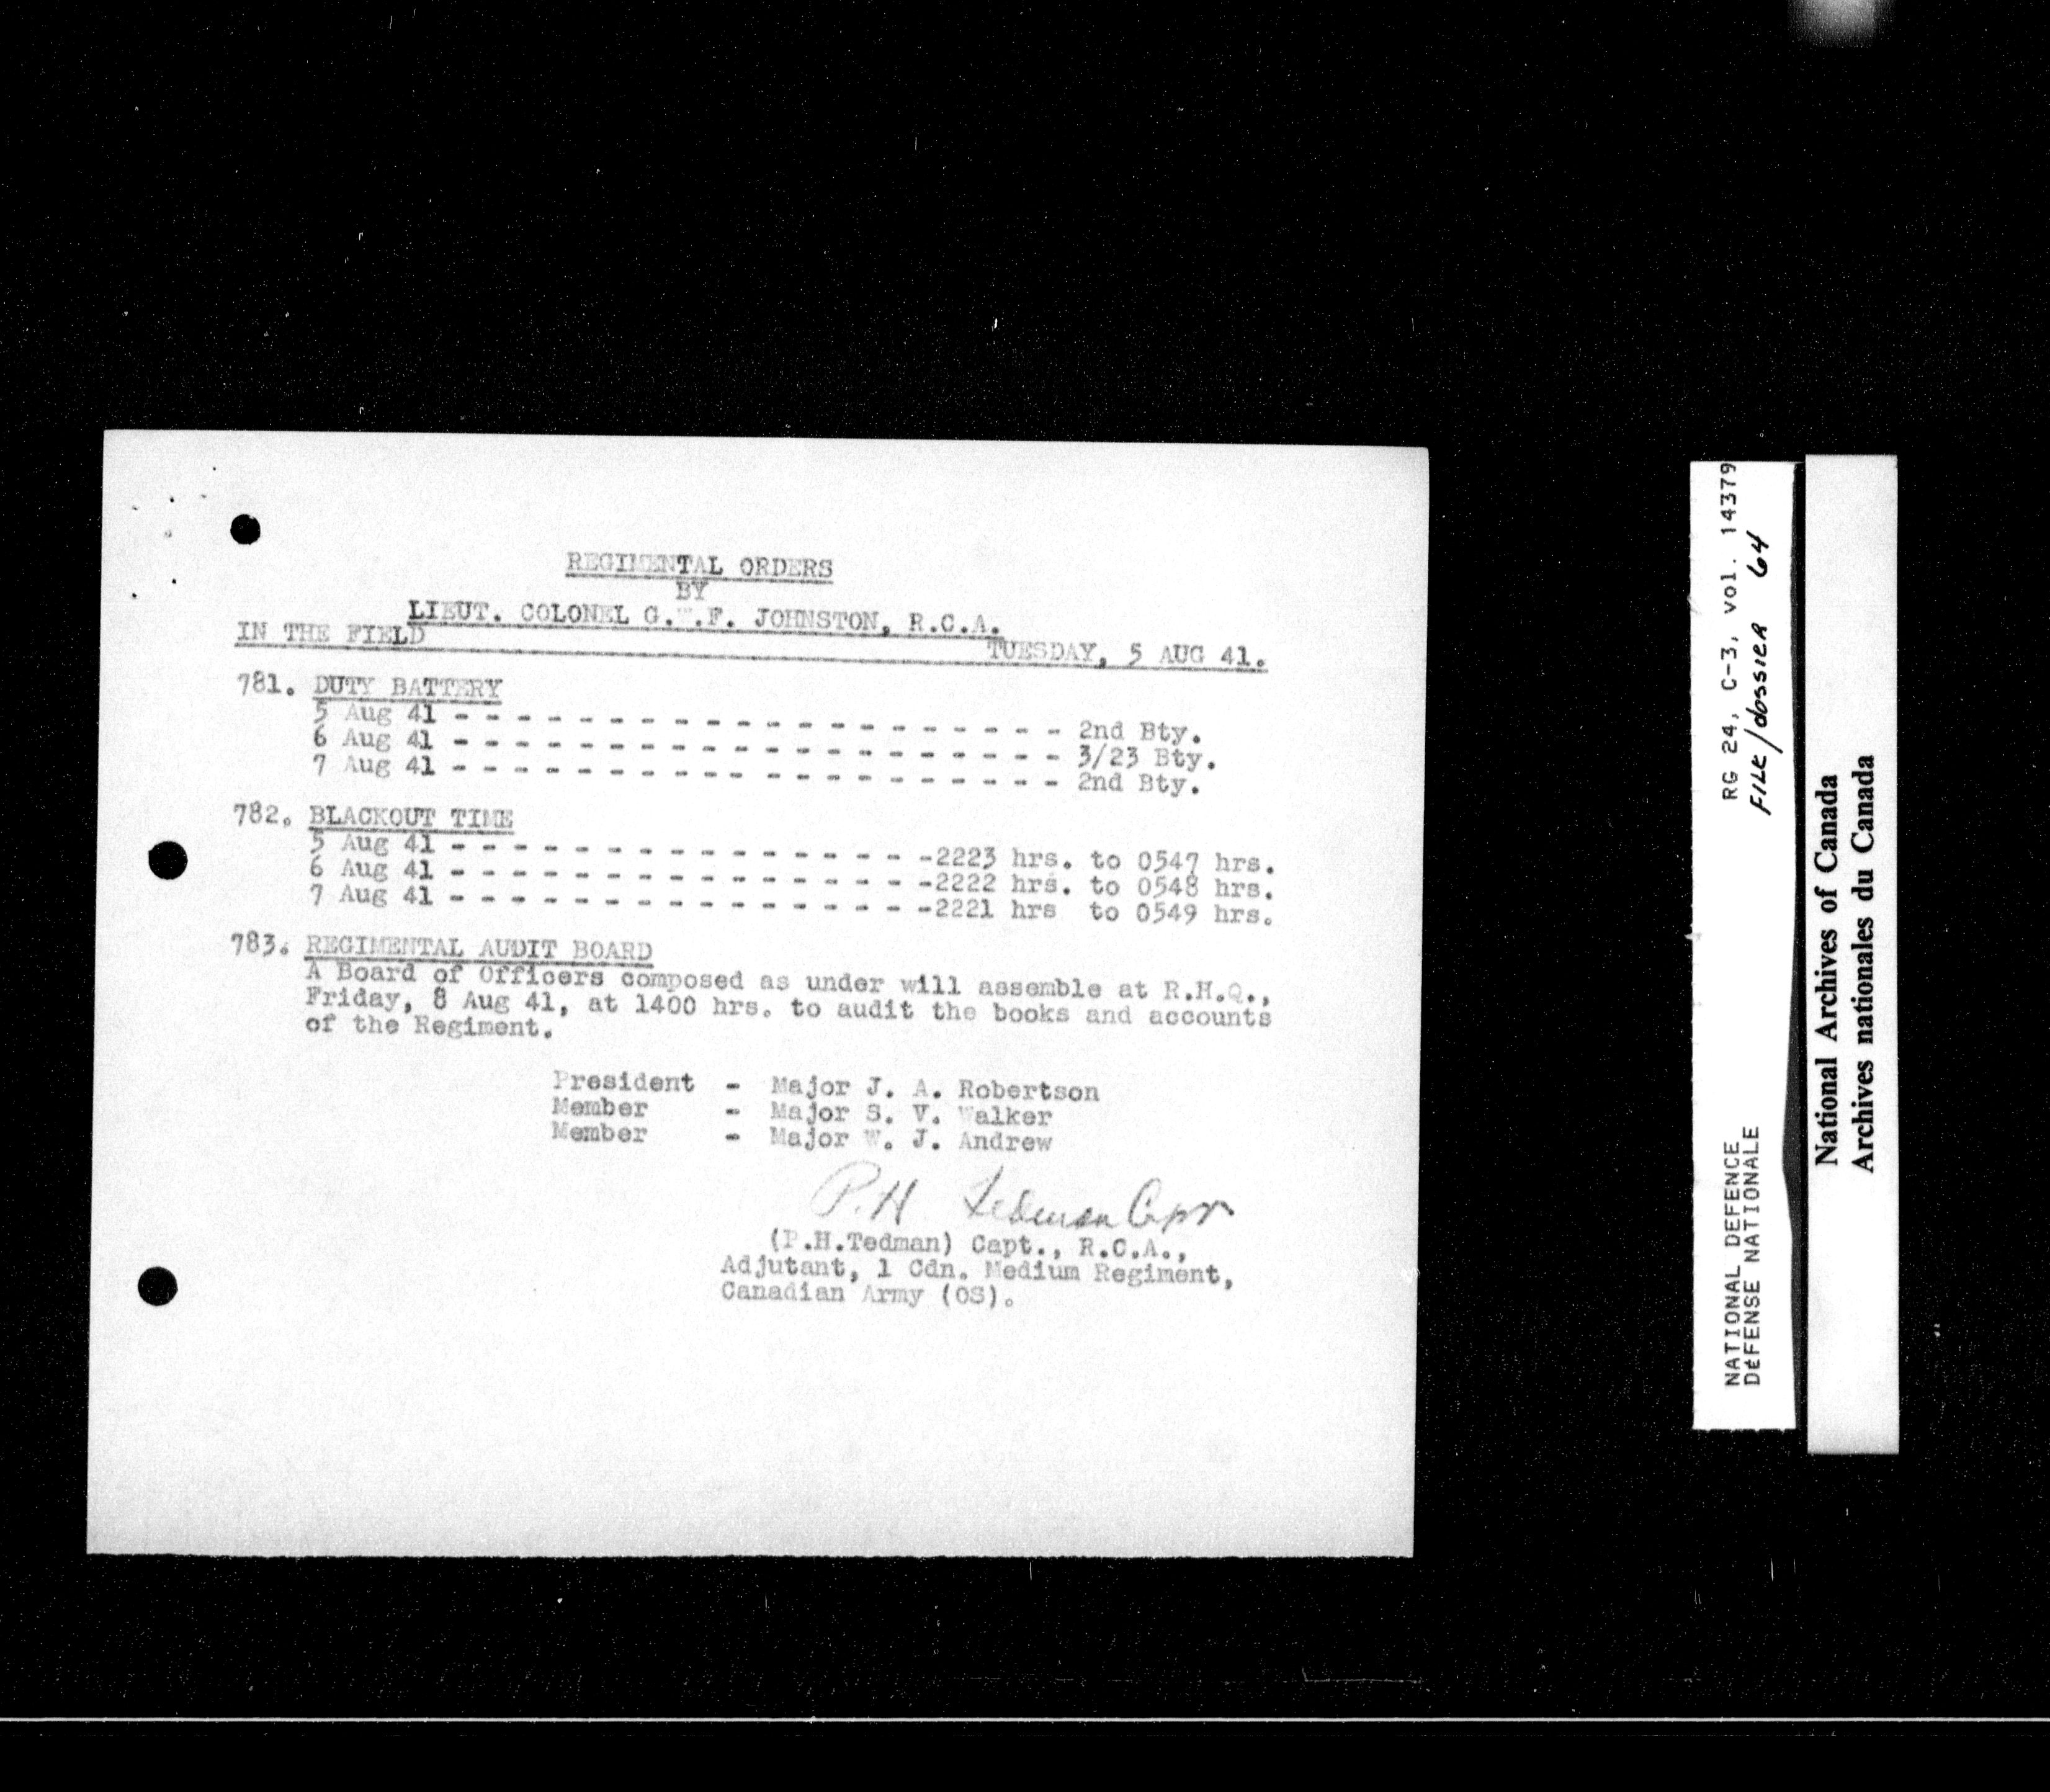 REGIMENTAL ORDERS
BY
LIEUT. COLONEL G. .F. JOHNSTON, R.C.A.
IN THE FIELD
TUESDAY, 5 AUG 41.
781. DUTY BATTERY
5 Aug 41 - - - - - - - - - - - - - - - - - - - - 2nd Bty.
6 Aug 41 - - - - - - - - - - - - - - - - - - - - 3/23 Bty.
7 Aug 41 - - - - - - - - - - - - - - - - - - - - 2nd Bty.
782. BLACKOUT TIME
5 Aug 41 - - - - - - - - - - - - - - - -2223 hrs. to 0547 hrs.
6 Aug 41 - - - - - - - - - - - - - - - -2222 hrs. to 0548 hrs.
7 Aug 41 - - - - - - - - - - - - - - - -2221 hrs to 0549 hrs.
783. REGIMENTAL AUDIT BOARD
A Board of Officers composed as under will assemble at R.H.Q.,
Friday, 8 Aug 41, at 1400 hrs. to audit the books and accounts
of the Regiment.
President - Major J. A. Robertson
Member - Major S. V. Walker
Member - Major W. J. Andrew
P.H Tedman Capt
(P.H.Tedman) Capt., R.C.A.,
Adjutant, 1 Cdn. Medium Regiment,
Canadian Army (OS).
NATIONAL DEFENCE RG 24, C-3, vol. 14379
DÉFENSE NATIONALE FILE/dossier 64
National Archives of Canada
Archives nationales du Canada